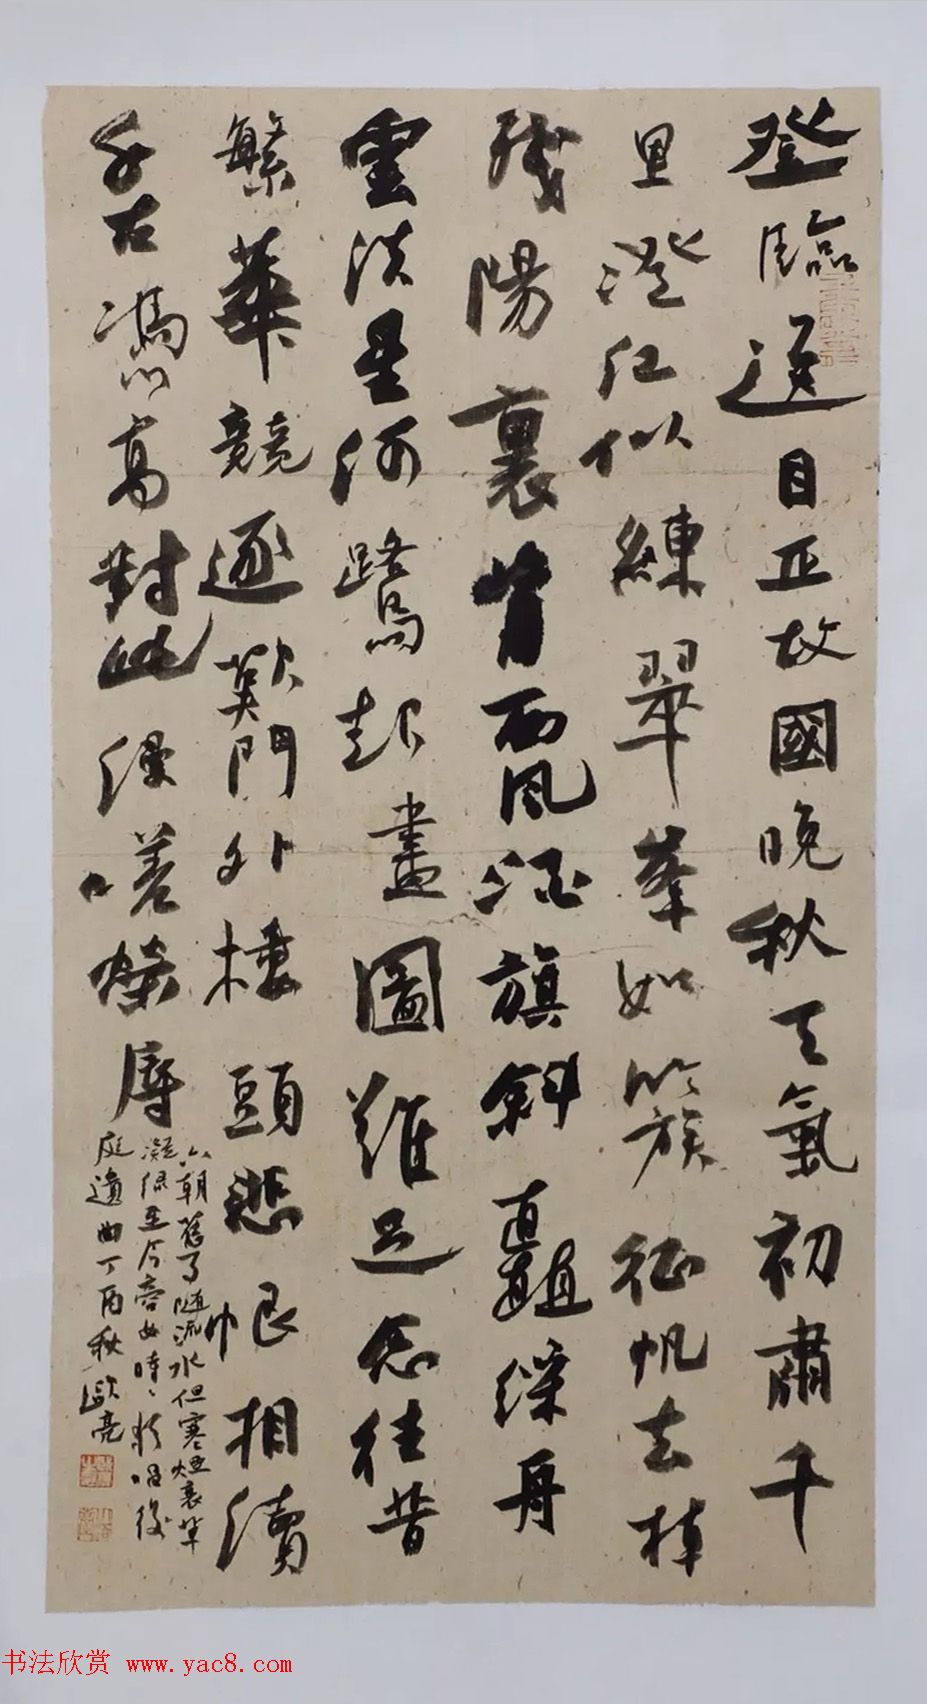 登臨送目正故國晚秋天氣初肅千
里澄江似練翠峯如簇征帆去棹
殘陽裏背西風酒旗斜矗綵舟
雲淡星河鷺起畫圖難足念往昔
繁華競逐歎門外樓頭悲恨相續
千古憑高對此漫嗟榮辱
六朝舊事隨流水但寒煙衰草
凝綠至今商女時時猶唱後
庭遺曲丁酉秋歐亮
书法欣赏 www.yac8.com